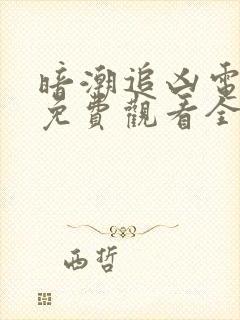 暗潮追凶電
免費觀看全
西哲